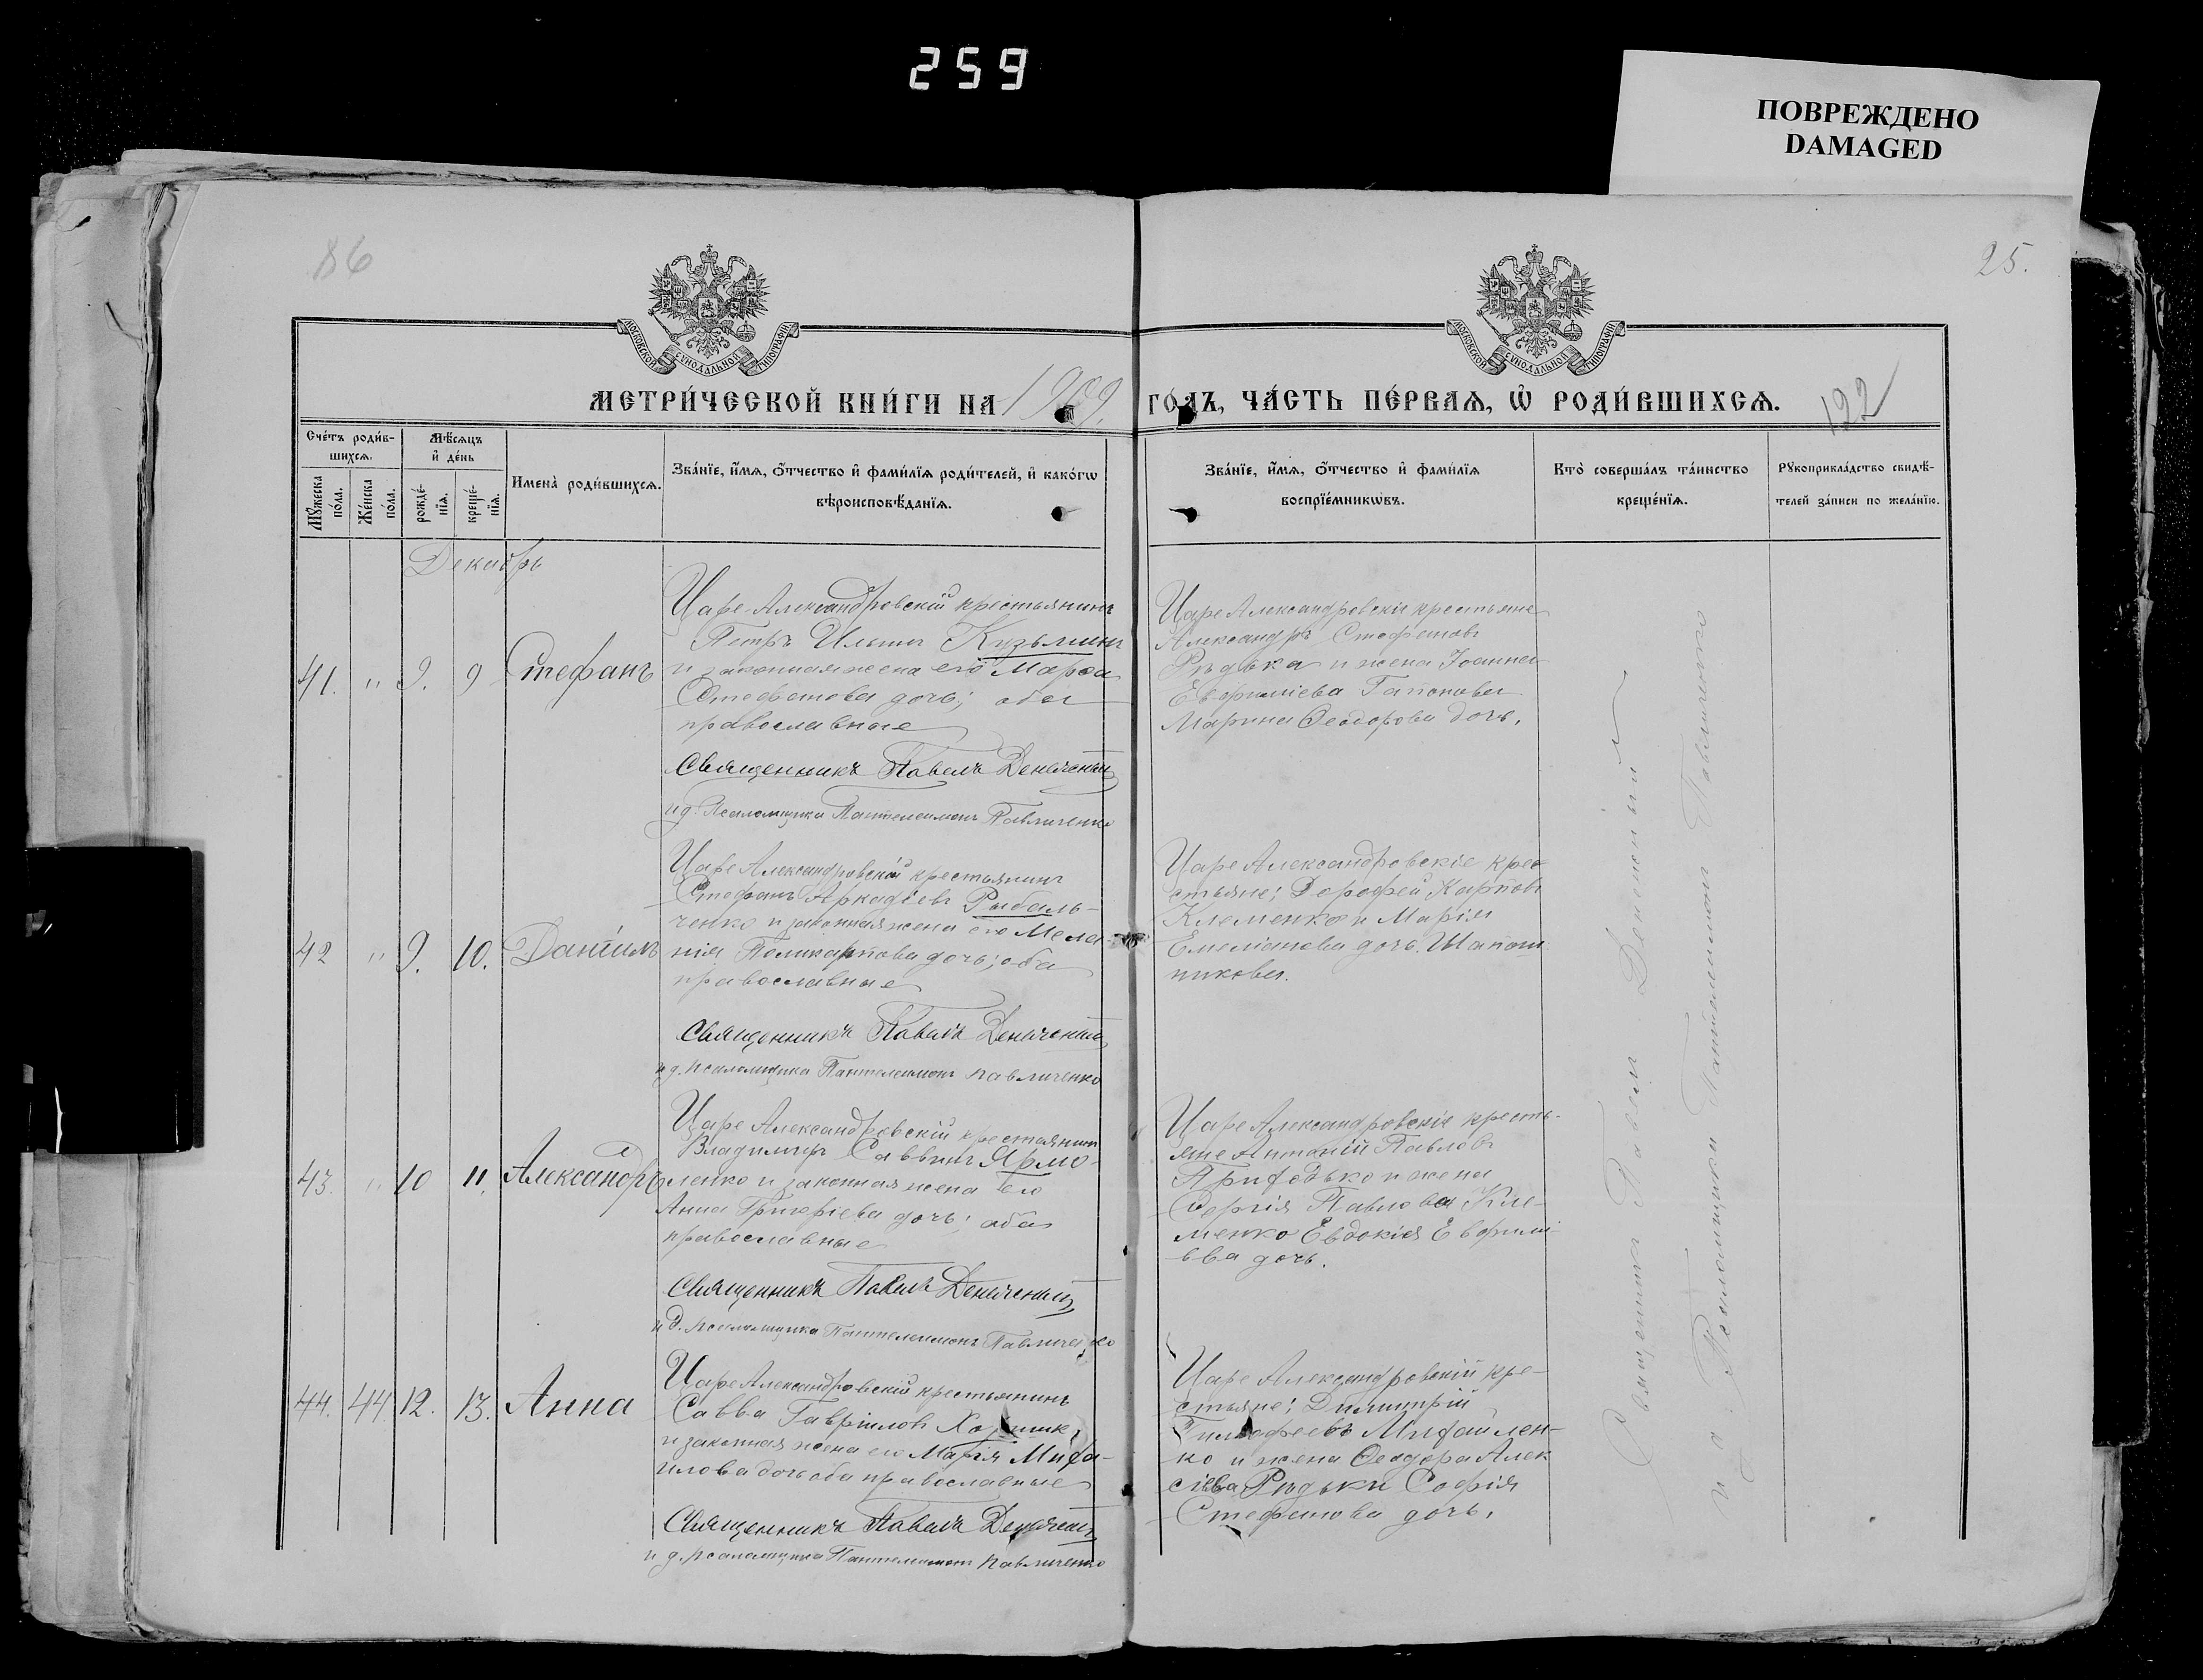 259
ПОВРЕЖДЕНО
DAMAGED
86
25.
МОСКОВСКОЙ СѴНОДАЛЬНОЙ ТИПОГРАФІИ
МОСКОВСКОЙ СѴНОДАЛЬНОЙ ТИПОГРАФІИ
МЕТРИ́ЧЕСКОЙ КНИ́ГИ НА 1909.
ГО́ДЪ, ЧА́СТЬ ПЕ́РВАѦ, Ѡ РОДИ́ВШИХСѦ.
122
Сче́тъ роди́в-
шихсѧ.
Мꙋжеска
по́ла.
Же́нска
по́ла.
Мѣ́сѧцъ
и҆ де́нь
рожде́-
нїѧ.
креще́-
нїѧ.
И҆мена̀ роди́вшихсѧ.
Зва́нїе, и҆́мѧ, ѻ҆́тчество и҆ фами́лїѧ роди́телей, и҆ како́гѡ
вѣроисповѣ́данїѧ.
Зва́нїе, и҆́мѧ, ѻ҆́тчество и҆ фами́лїѧ
воспрїе́мникѡвъ.
Кто̀ соверша́лъ та́инство
креще́нїѧ.
Рꙋкоприкла́дство свидѣ́-
телей за́писи по жела́нїю.
Декабрь
41. " 9. 9 Стефанъ
Царе-Александровскій крестьянинъ
Петръ Ильинъ Кузьминъ
и законная жена его Марѳа
Стефанова дочь; оба
православные
Священникъ Павелъ
и д. Псаломщика Пантелеимонъ Павличенко
Царе Александровскіе крестьяне
Александръ Стефановъ
Рѣдька и жена Іоанна
Евфиміева Гапонова
Марина Ѳеодорова дочь.
42 " 9. 10. Даніилъ
Царе Александровскій крестьянинъ
Стефанъ Аркадіевъ Рыбаль-
ченко и законная жена его Мела-
нія Поликарпова дочь; оба
православные
Священникъ Павелъ
и д. псаломщика Пантелеимонъ Павличенко
Царе Александровскіе крес-
тьяне; Дорофей Карповъ
Клеменко и Марія
Емеліанова дочь Шапош
никова.
43. " 10 11. Александръ
Царе Александровскій крестьянинъ
Владимиръ Саввинъ Ярмо-
ленко и законная жена его
Анна Григоріева дочь; оба
православные
Священникъ Павелъ
и д. псаломщика Пантелеимонъ Павличенко
Царе Александровскіе кресть-
яне Антоній Павловъ
Приходько и жена
Сергія Павлова Кле-
менко Евдокія Евфимі-
ева дочь.
44. 44. 12. 13. Анна
Царе Александровскій крестьянинъ
Савва Гавріиловъ
и законная жена его Марія Миха-
илова дочь оба православные
Священникъ Павелъ
и д. псаломщика Пантелеимонъ Павличенко
Царе Александровскій кре-
стьяне; Димитрій
Михайлен-
ко и жена Ѳеодора Алек
сіева Рѣдьки Софія
Стефанова дочь.
Священникъ Павелъ
и д. Псаломщика Пантелеимонъ Павличенко